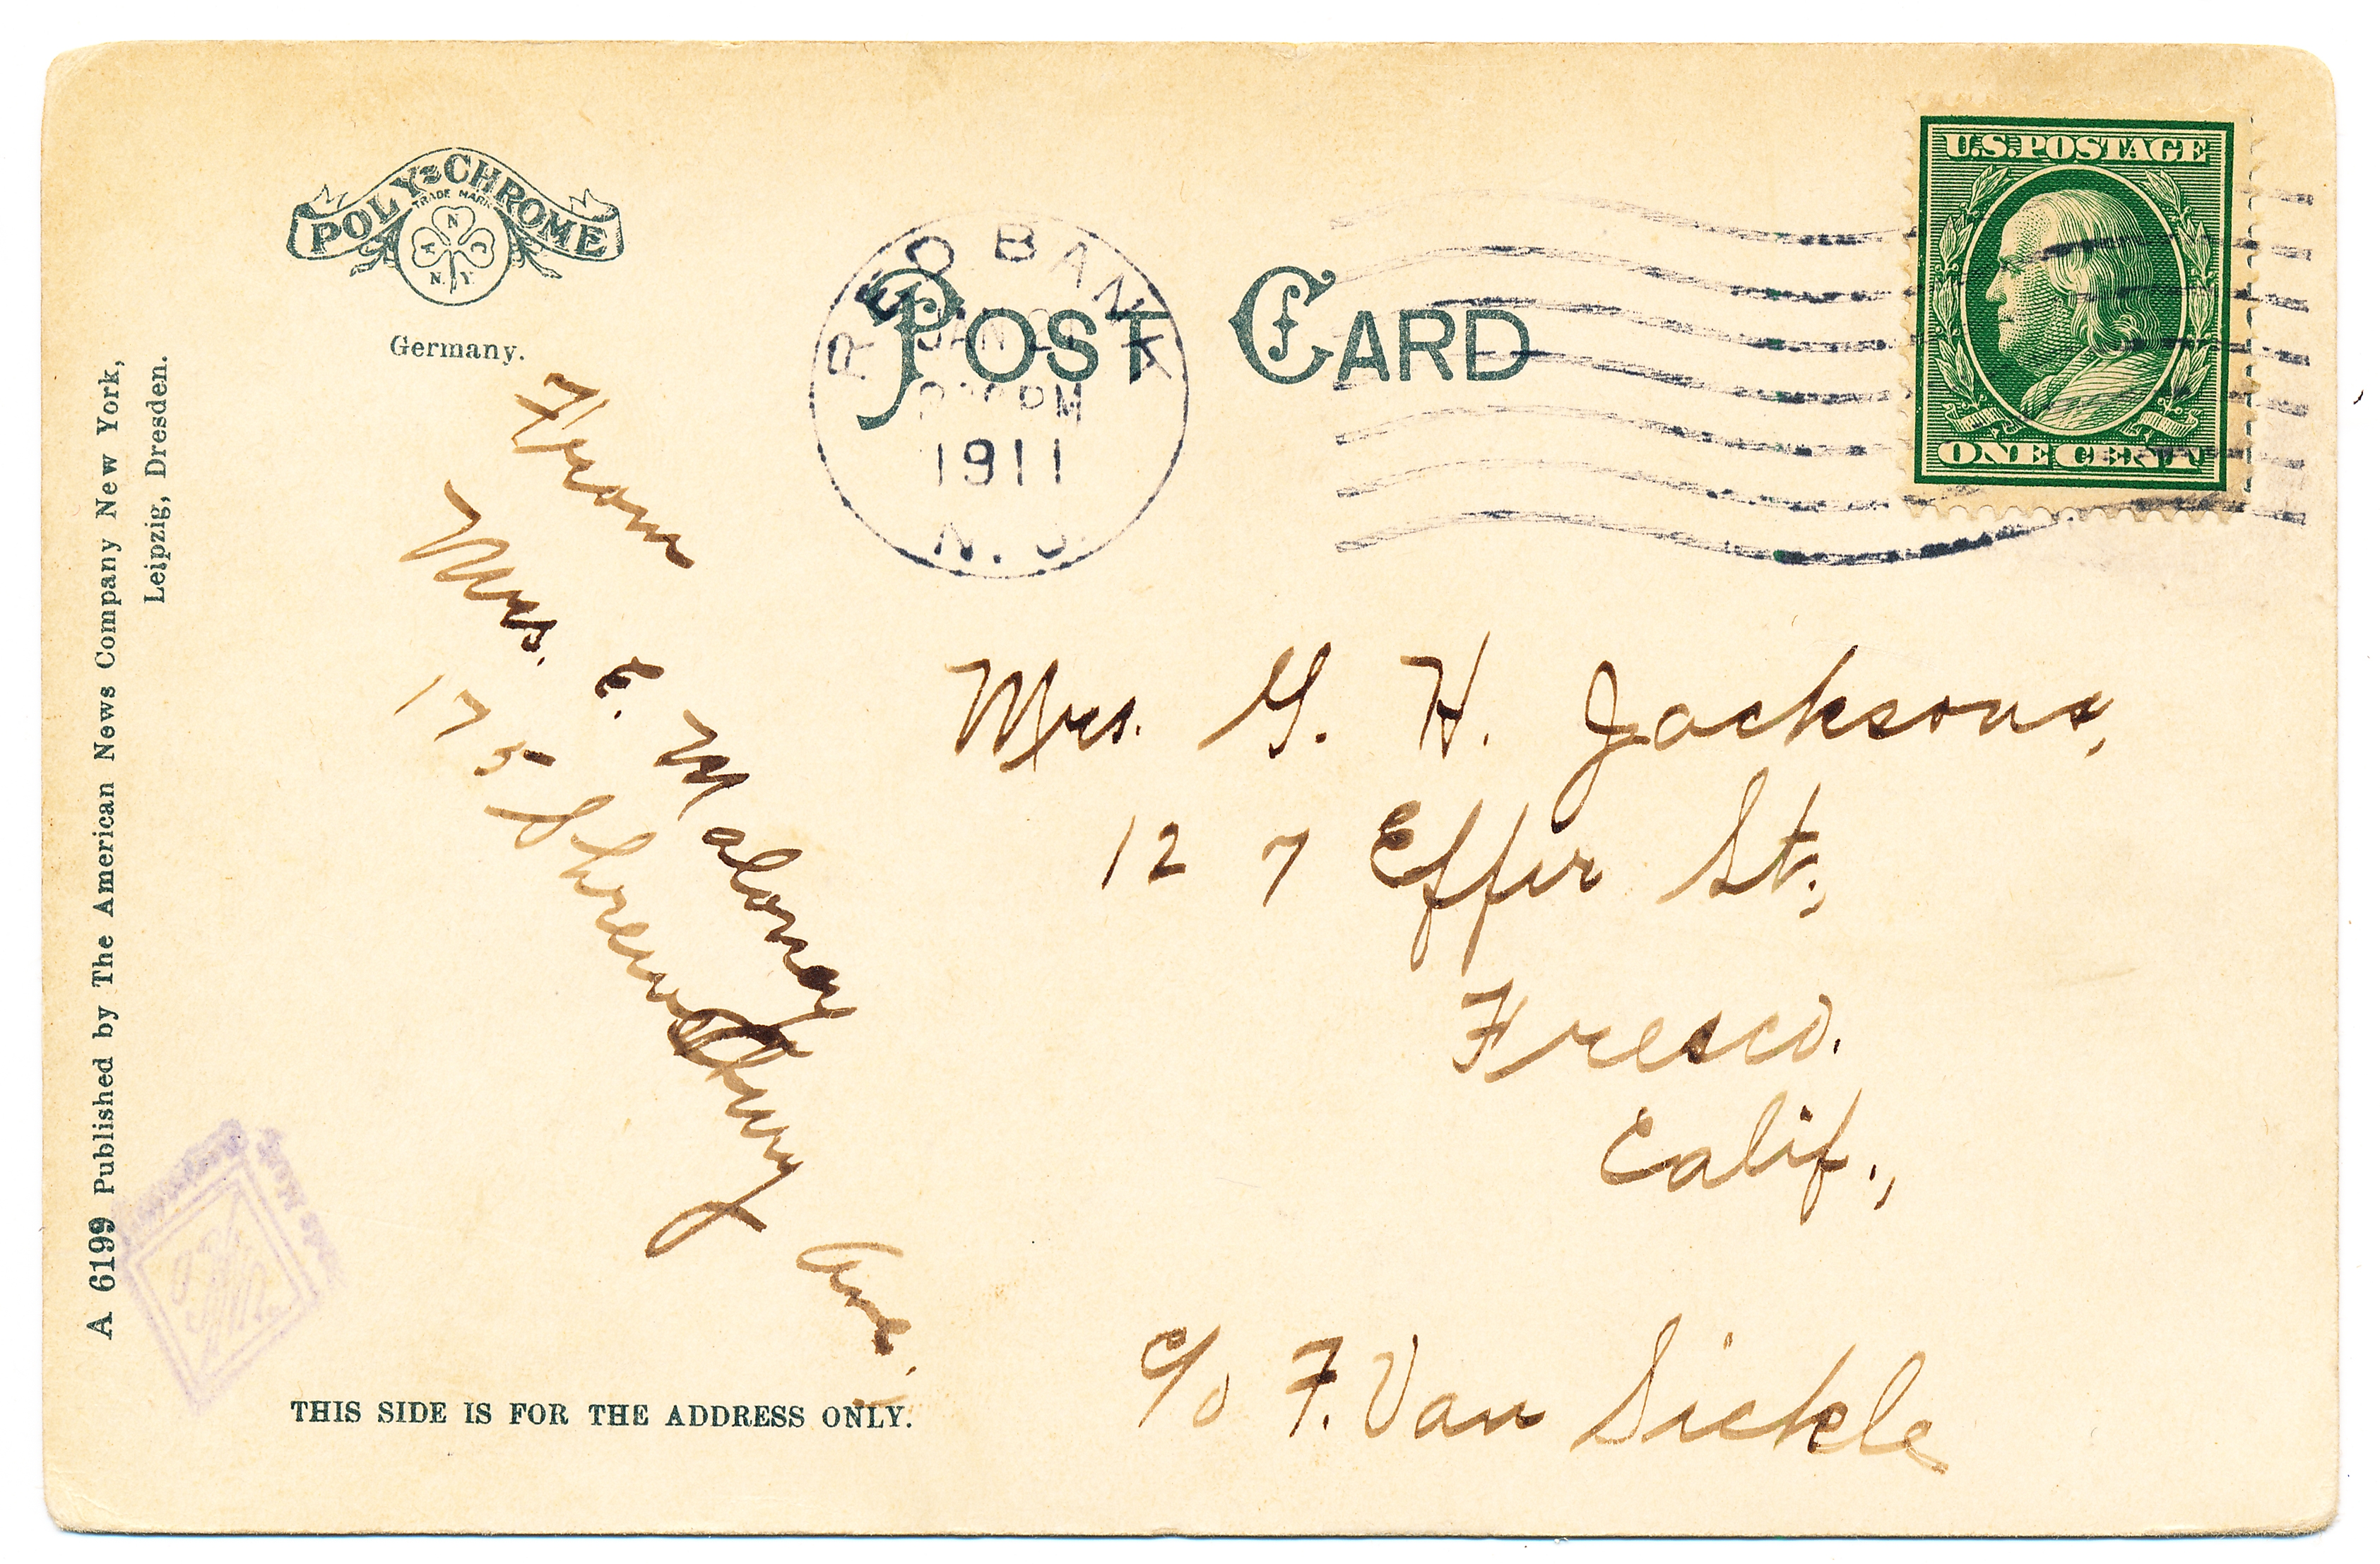 POLY-CHROME
TRADE MARK
A N C
N. Y.
Germany.
POST CARD
RED BANK
JAN
PM
1911
N. J.
U.S.POSTAGE
ONE CENT
From
Mrs. E. Maloney
175 Shrewsbury Ave.
Mrs. G. H. Jackson,
127 Effie St.,
Fresco.
Calif.,
c/o F. Van Sickle
A 6199 Published by The American News Company New York,
Leipzig, Dresden.
THIS SIDE IS FOR THE ADDRESS ONLY.